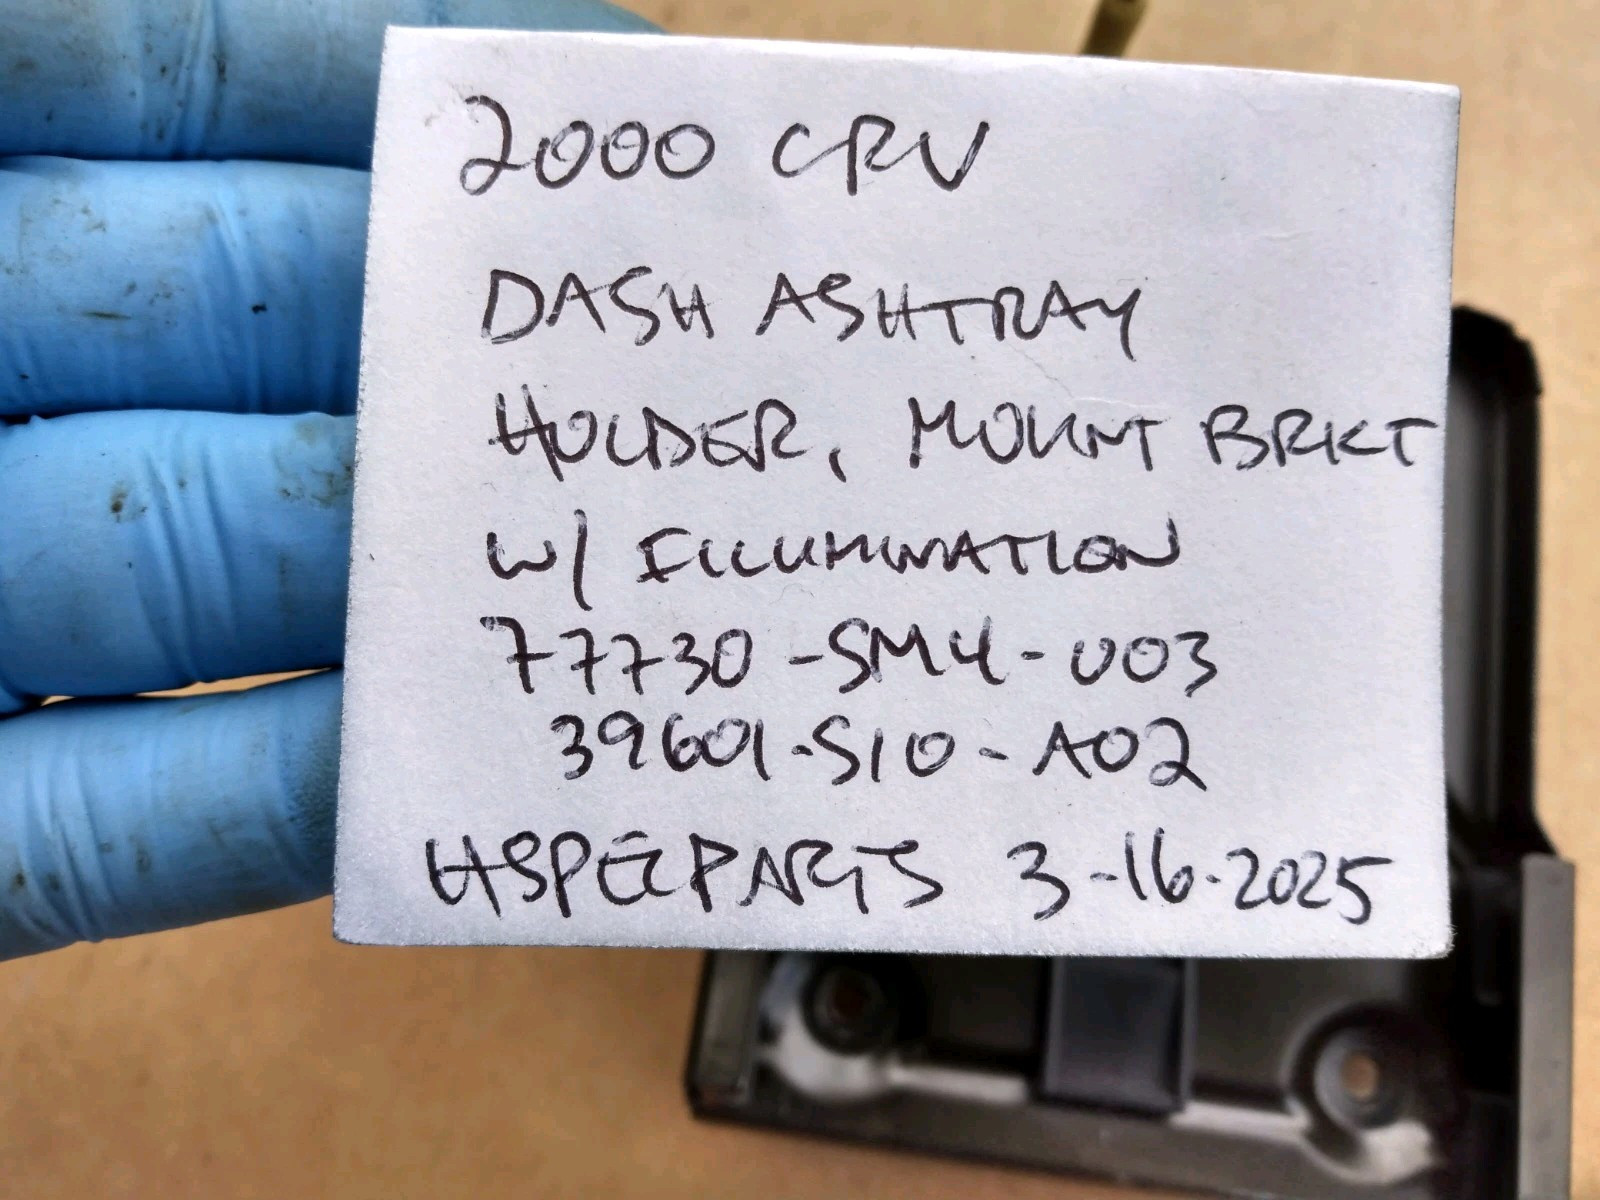 2000 CRV
DASH ASHTRAY
HOLDER, MOUNT BRKT
W/ ILLUMINATION
77730-SM4-003
39601-S10-A02
HSPECPARTS 3-16-2025